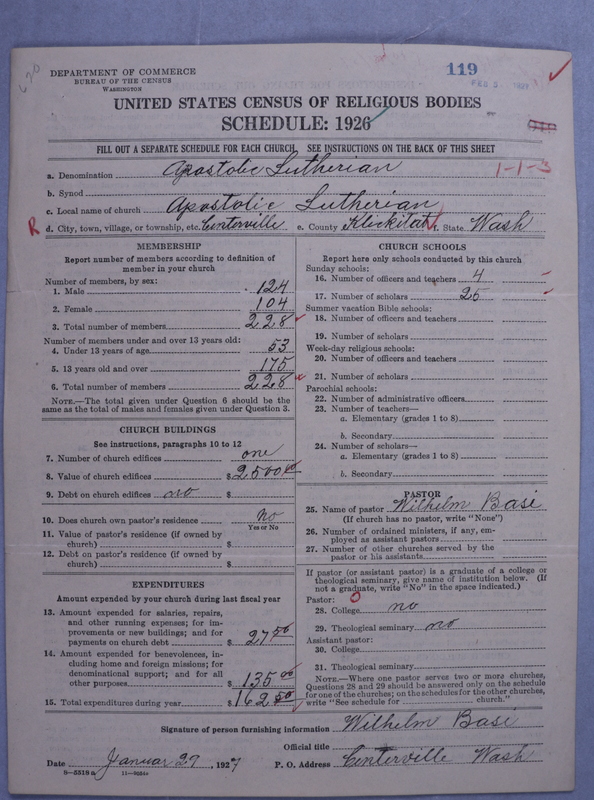 119
DEPARTMENT OF COMMERCE
BUREAU OF THE CENSUS
WASHINGTON
FEB 5 1927
UNITED STATES CENSUS OF RELIGIOUS BODIES
SCHEDULE: 1926
FILL OUT A SEPARATE SCHEDULE FOR EACH CHURCH. SEE INSTRUCTIONS ON THE BACK OF THIS SHEET
a. Denomination Apostolic Lutherian 1-1-3
b. Synod
c. Local name of church Apostolic Lutherian
R d. City, town, village, or township, etc. Centerville e. County Klickitat f. State Wash
MEMBERSHIP
Report number of members according to definition of
member in your church
Number of members, by sex:
1. Male 124
2. Female 104
3. Total number of members 228
Number of members under and over 13 years old:
4. Under 13 years of age 53
5. 13 years old and over 175
6. Total number of members 228
NOTE.—The total given under Question 6 should be the
same as the total of males and females given under Question 3.
CHURCH BUILDINGS
See instructions, paragraphs 10 to 12
7. Number of church edifices one
8. Value of church edifices $2500 00
9. Debt on church edifices no $
10. Does church own pastor's residence No
Yes or No
11. Value of pastor's residence (if owned by
church) $
12. Debt on pastor's residence (if owned by
church) $
EXPENDITURES
Amount expended by your church during last fiscal year
13. Amount expended for salaries, repairs,
and other running expenses; for im-
provements or new buildings; and for
payments on church debt $ 27 50
14. Amount expended for benevolences, in-
cluding home and foreign missions; for
denominational support; and for all
other purposes $ 135 00
15. Total expenditures during year $162 50
CHURCH SCHOOLS
Report here only schools conducted by this church
Sunday schools:
16. Number of officers and teachers 4
17. Number of scholars 25
Summer vacation Bible schools:
18. Number of officers and teachers
19. Number of scholars
Week-day religious schools:
20. Number of officers and teachers
21. Number of scholars
Parochial schools:
22. Number of administrative officers
23. Number of teachers—
a. Elementary (grades 1 to 8)
b. Secondary
24. Number of scholars—
a. Elementary (grades 1 to 8)
b. Secondary
PASTOR
25. Name of pastor Wilhelm Basi
(If church has no pastor, write "None")
26. Number of ordained ministers, if any, em-
ployed as assistant pastors
27. Number of other churches served by the
pastor or his assistants
If pastor (or assistant pastor) is a graduate of a college or
theological seminary, give name of institution below. (If
not a graduate, write "No" in the space indicated.)
Pastor: 0
28. College no
29. Theological seminary no
Assistant pastor:
30. College
31. Theological seminary
NOTE.—Where one pastor serves two or more churches,
Questions 28 and 29 should be answered only on the schedule
for one of the churches; on the schedules for the other churches,
write "See schedule for church."
Signature of person furnishing information Wilhelm Basi
Official title
Date Januar 27, 1927 P. O. Address Centerville Wash